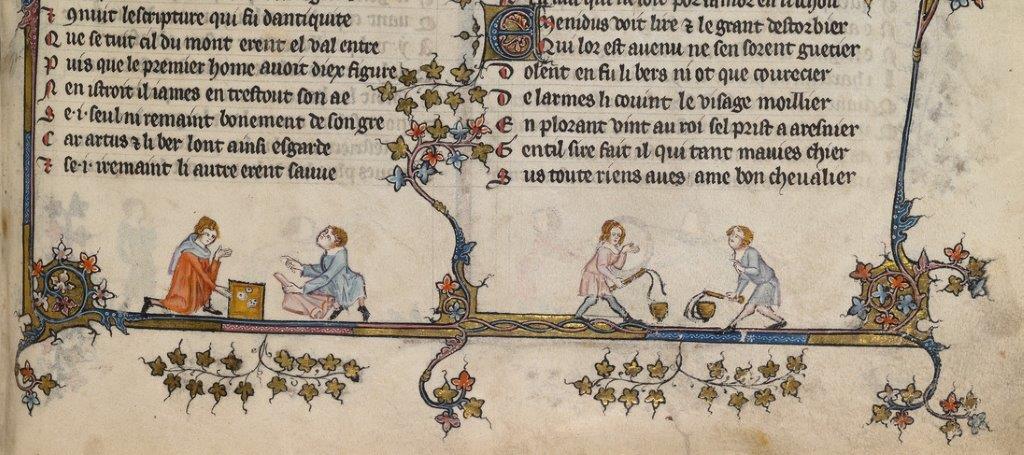 ⁊ gnuit lescripture qui fu dantiquite
Q ue se tuit cil du mont erent el val entre
P uis que le premier home auoit diex figure
N en istroit .i. iames en trestout son ae
S e .i. seul ni remaint bonement de son gre
C ar artus ⁊ li ber lont ainsi esgarde
⁊ se .i. i remaint li autre erent sauue
Menidus voit lire ⁊ le grant destorbier
Qui lor est auenu ne sen sorent guetier
D olent en fu li bers ni ot que courecier
D e larmes li couint le visage moillier
E n plorant vint au roi sel prist a aresnier
G entil sire fait il qui tant mauies chier
S us toute riens aues ame bon cheualier